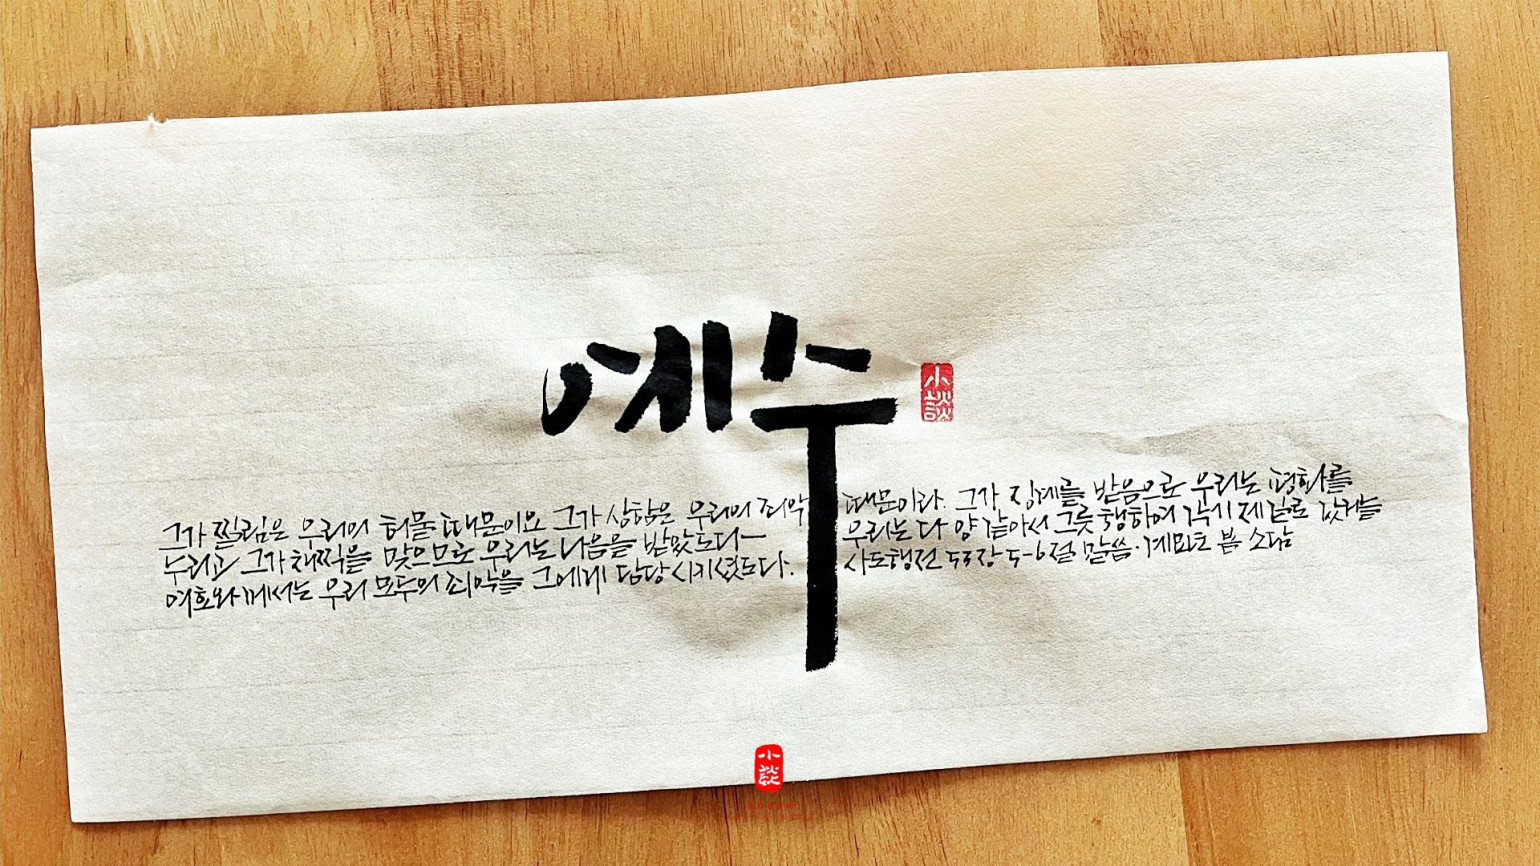 예수
小談
그가 찔림은 우리의 허물 때문이요 그가 상함은 우리의 죄악 때문이라. 그가 징계를 받음으로 우리는 평화를
누리고 그가 채찍을 맞으므로 우리는 나음을 받았도다ー 우리는 다 양 같아서 그릇 행하여 각기 제 길로 갔거늘
여호와께서는 우리 모두의 죄악을 그에게 담당시키셨도다. 사도행전 53장 5-6절 말씀·계묘년 봄 소담
小談